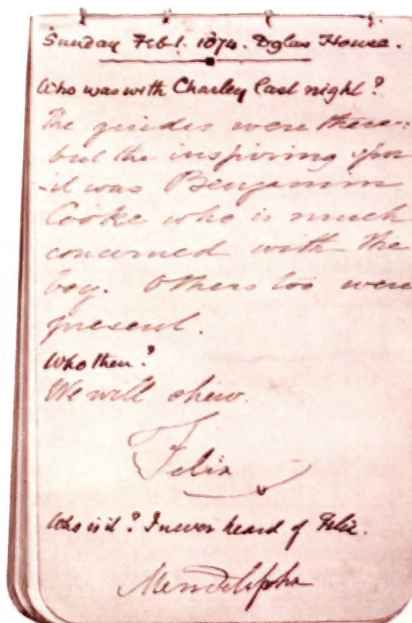 Sunday Feb 1. 1874. Dglas House.
Who was with Charley last night?
The guides were there:
but the inspiring spir
-it was Benjamin
Cooke who is much
concerned with the
boy. Others too were
present.
Who then?
We will shew.
Felix
Who is it? I never heard of Felix.
Mendelssohn